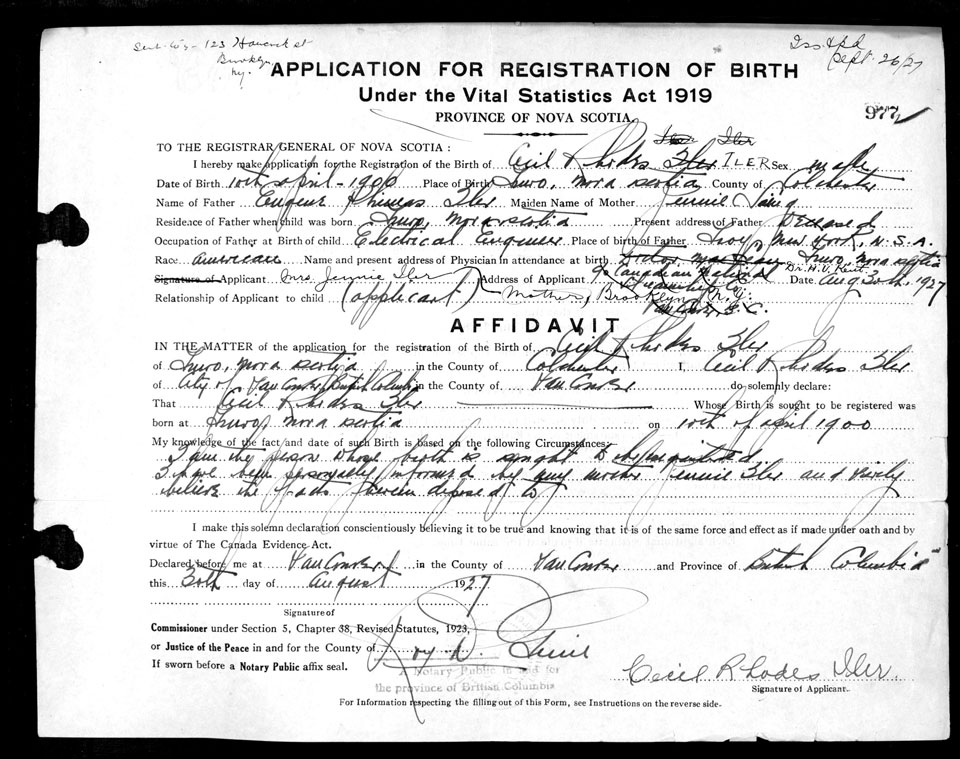 Sent to :- 123 Hancock st
Brooklyn
N.Y.
Iss. & pd
Sept. 26/27
APPLICATION FOR REGISTRATION OF BIRTH
Under the Vital Statistics Act 1919
PROVINCE OF NOVA SCOTIA
977
TO THE REGISTRAR GENERAL OF NOVA SCOTIA :
Iler
I hereby make application for the Registration of the Birth of Cecil Rhodes Iler ILER Sex male
Date of Birth 10th april - 1900 Place of Birth Truro, Nova Scotia County of Colchester
Name of Father Eugene Phineas Iler Maiden Name of Mother Jennie
Residence of Father when child was born Truro, Nova Scotia Present address of Father Deceased
Occupation of Father at Birth of child Electrical Engineer Place of birth of Father Troy, New York, U.S.A.
Race american Name and present address of Physician in attendance at birth Truro, Nova Scotia
Dr. H.V. Kent.
Signature of Applicant Mrs Jennie Iler Address of Applicant c/o Canadian National Date Aug 30th, 1927
Steamship Co.
Relationship of Applicant to child (applicant) Mother, Brooklyn, N.Y.
Vancouver, B.C.
AFFIDAVIT
IN THE MATTER of the application for the registration of the Birth of Cecil Rhodes Iler
of Truro, Nova Scotia in the County of Colchester I, Cecil Rhodes Iler
of City of Vancouver, British Columbia in the County of Vancouver do solemnly declare:
That Cecil Rhodes Iler Whose Birth is sought to be registered was
born at Truro, Nova Scotia on 10th of april 1900
My knowledge of the fact and date of such Birth is based on the following Circumstances:
I am the person whose birth is sought to be registered.
I have been personally informed by my mother Jennie Iler and verily
believe the facts herein deposed to
I make this solemn declaration conscientiously believing it to be true and knowing that it is of the same force and effect as if made under oath and by
virtue of The Canada Evidence Act.
Declared before me at Vancouver in the County of Vancouver and Province of British Columbia
this 30th day of August 1927
Signature of
Commissioner under Section 5, Chapter 38, Revised Statutes, 1923,
or Justice of the Peace in and for the County of Roy D.
If sworn before a Notary Public affix seal.
A Notary Public in and for
the province of British Columbia
Cecil Rhodes Iler
Signature of Applicant.
For Information respecting the filling out of this Form, see Instructions on the reverse side.